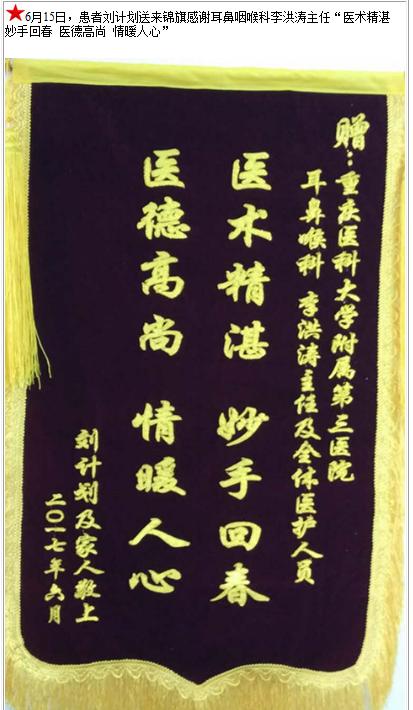 ★6月15日，患者刘计划送来锦旗感谢耳鼻咽喉科李洪涛主任“医术精湛
妙手回春 医德高尚 情暖人心”
赠：重庆医科大学附属第三医院
耳鼻喉科 李洪涛主任及全体医护人员
医术精湛 妙手回春
医德高尚 情暖人心
刘计划及家人敬上
二〇一七年六月